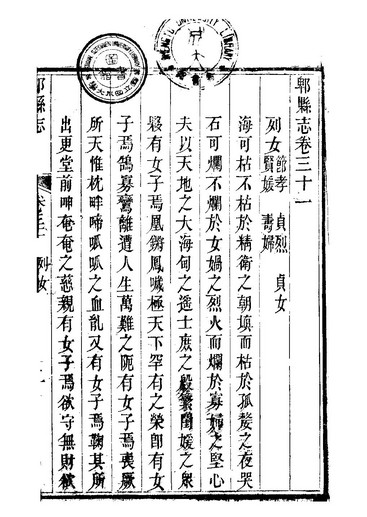 郫縣志卷三十一
列女 節孝 貞烈 貞女
賢媛 壽婦
海可枯不枯於精衛之朝填而枯於孤嫠之夜哭
石可爛不爛於女媧之烈火而爛於寡婦之堅心
夫以天地之大海甸之遥士庶之殷繁閨媛之眾
夥有女子焉凰鏘鳳噦極天下罕有之榮卽有女
子焉鵠寡鸞離遭人生萬難之阨有女子焉喪厥
所天惟枕畔啼呱呱之血胤又有女子焉鞠其所
出更堂前呻奄奄之慈親有女子焉欲守無財欲
郫縣志 列女